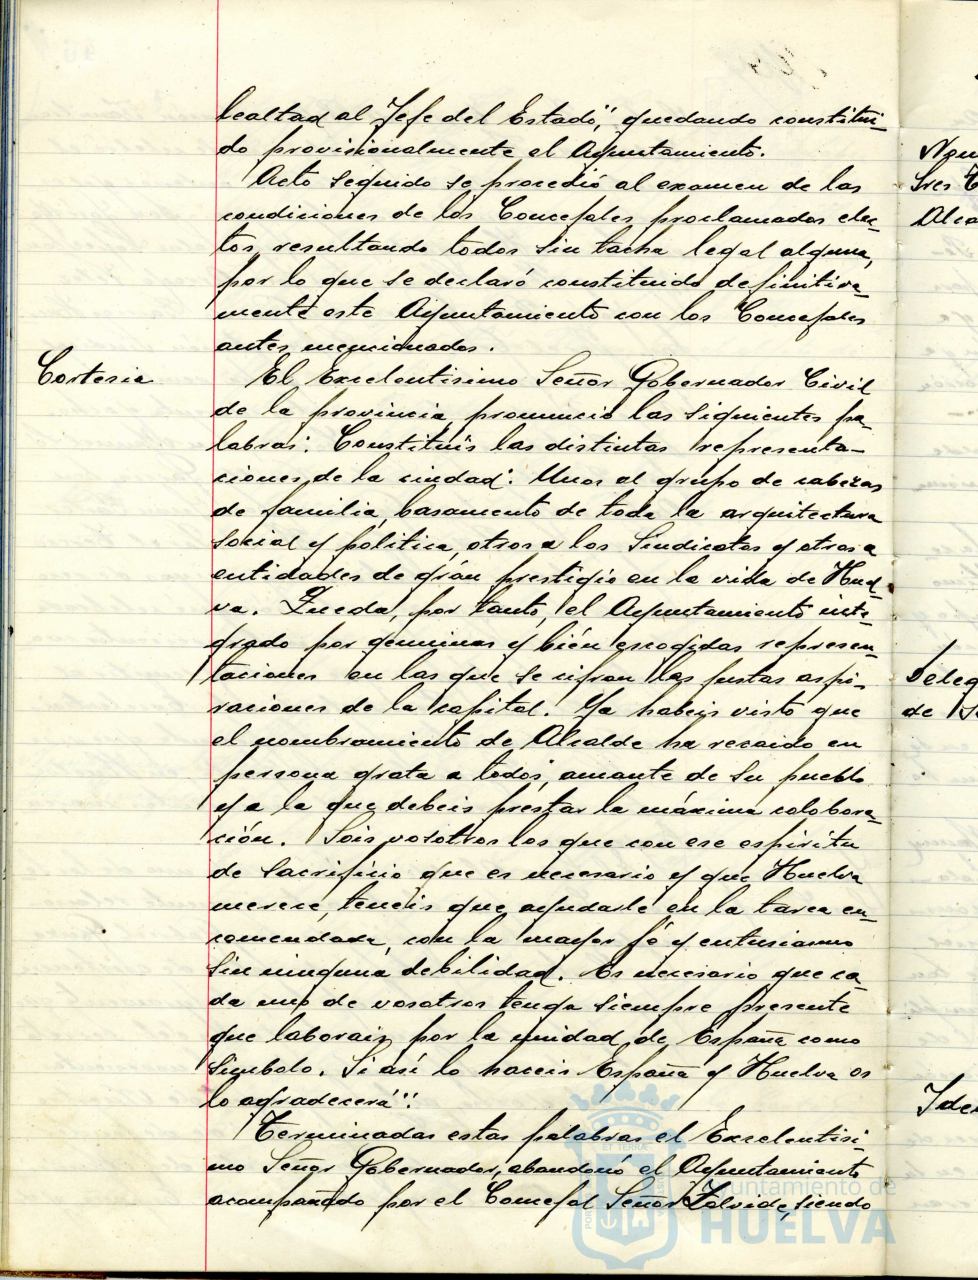 lealtad al Jefe del Estado", quedando constitui-
do provisionalmente el Ayuntamiento.
Acto seguido se procedió al examen de las
condiciones de los Concejales proclamados elec-
tos resultando todos sin tacha legal alguna,
por lo que se declaró constituido definitiva-
mente este Ayuntamiento con los Concejales
antes mencionados.
Cortesia
El Excelentisimo Señor Gobernador Civil
de la provincia, pronunció las siguientes pa-
labras: Constituis las distintas representa-
ciones de la ciudad: Unos al grupo de cabezas
de familia, basamento de toda la arquitectura
social y politica, otros a los Sindicatos y otros a
entidades de gran prestigio en la vida de Huel-
va. Queda, por tanto, el Ayuntamiento inte-
grado por genuinas y bién escogidas represen-
taciones en las que se cifran las justas aspi-
raciones de la capital. Ya habeis visto que
el nombramiento de Alcalde ha recaido en
persona grata a todos, amante de su pueblo
y a la que debeis prestar la máxima colobora-
ción. Sois vosotros los que con ese espiritu
de sacrificio que es necesario y que Huelva
merece, teneis que ayudarle en la tarea en-
comendada, con la mayor fé y entusiasmo
sin ninguna debilidad. Es necesario que ca-
da uno de vosotros tenga siempre presente
que laborais por la unidad de España como
simbolo. Si así lo haceis España y Huelva os
lo agradecerá".
Terminadas estas palabras el Excelentisi-
mo Señor Gobernador, abandonó el Ayuntamiento
acompañado por el Concejal Señor Zalvide, siendo
Ayuntamiento de
HUELVA